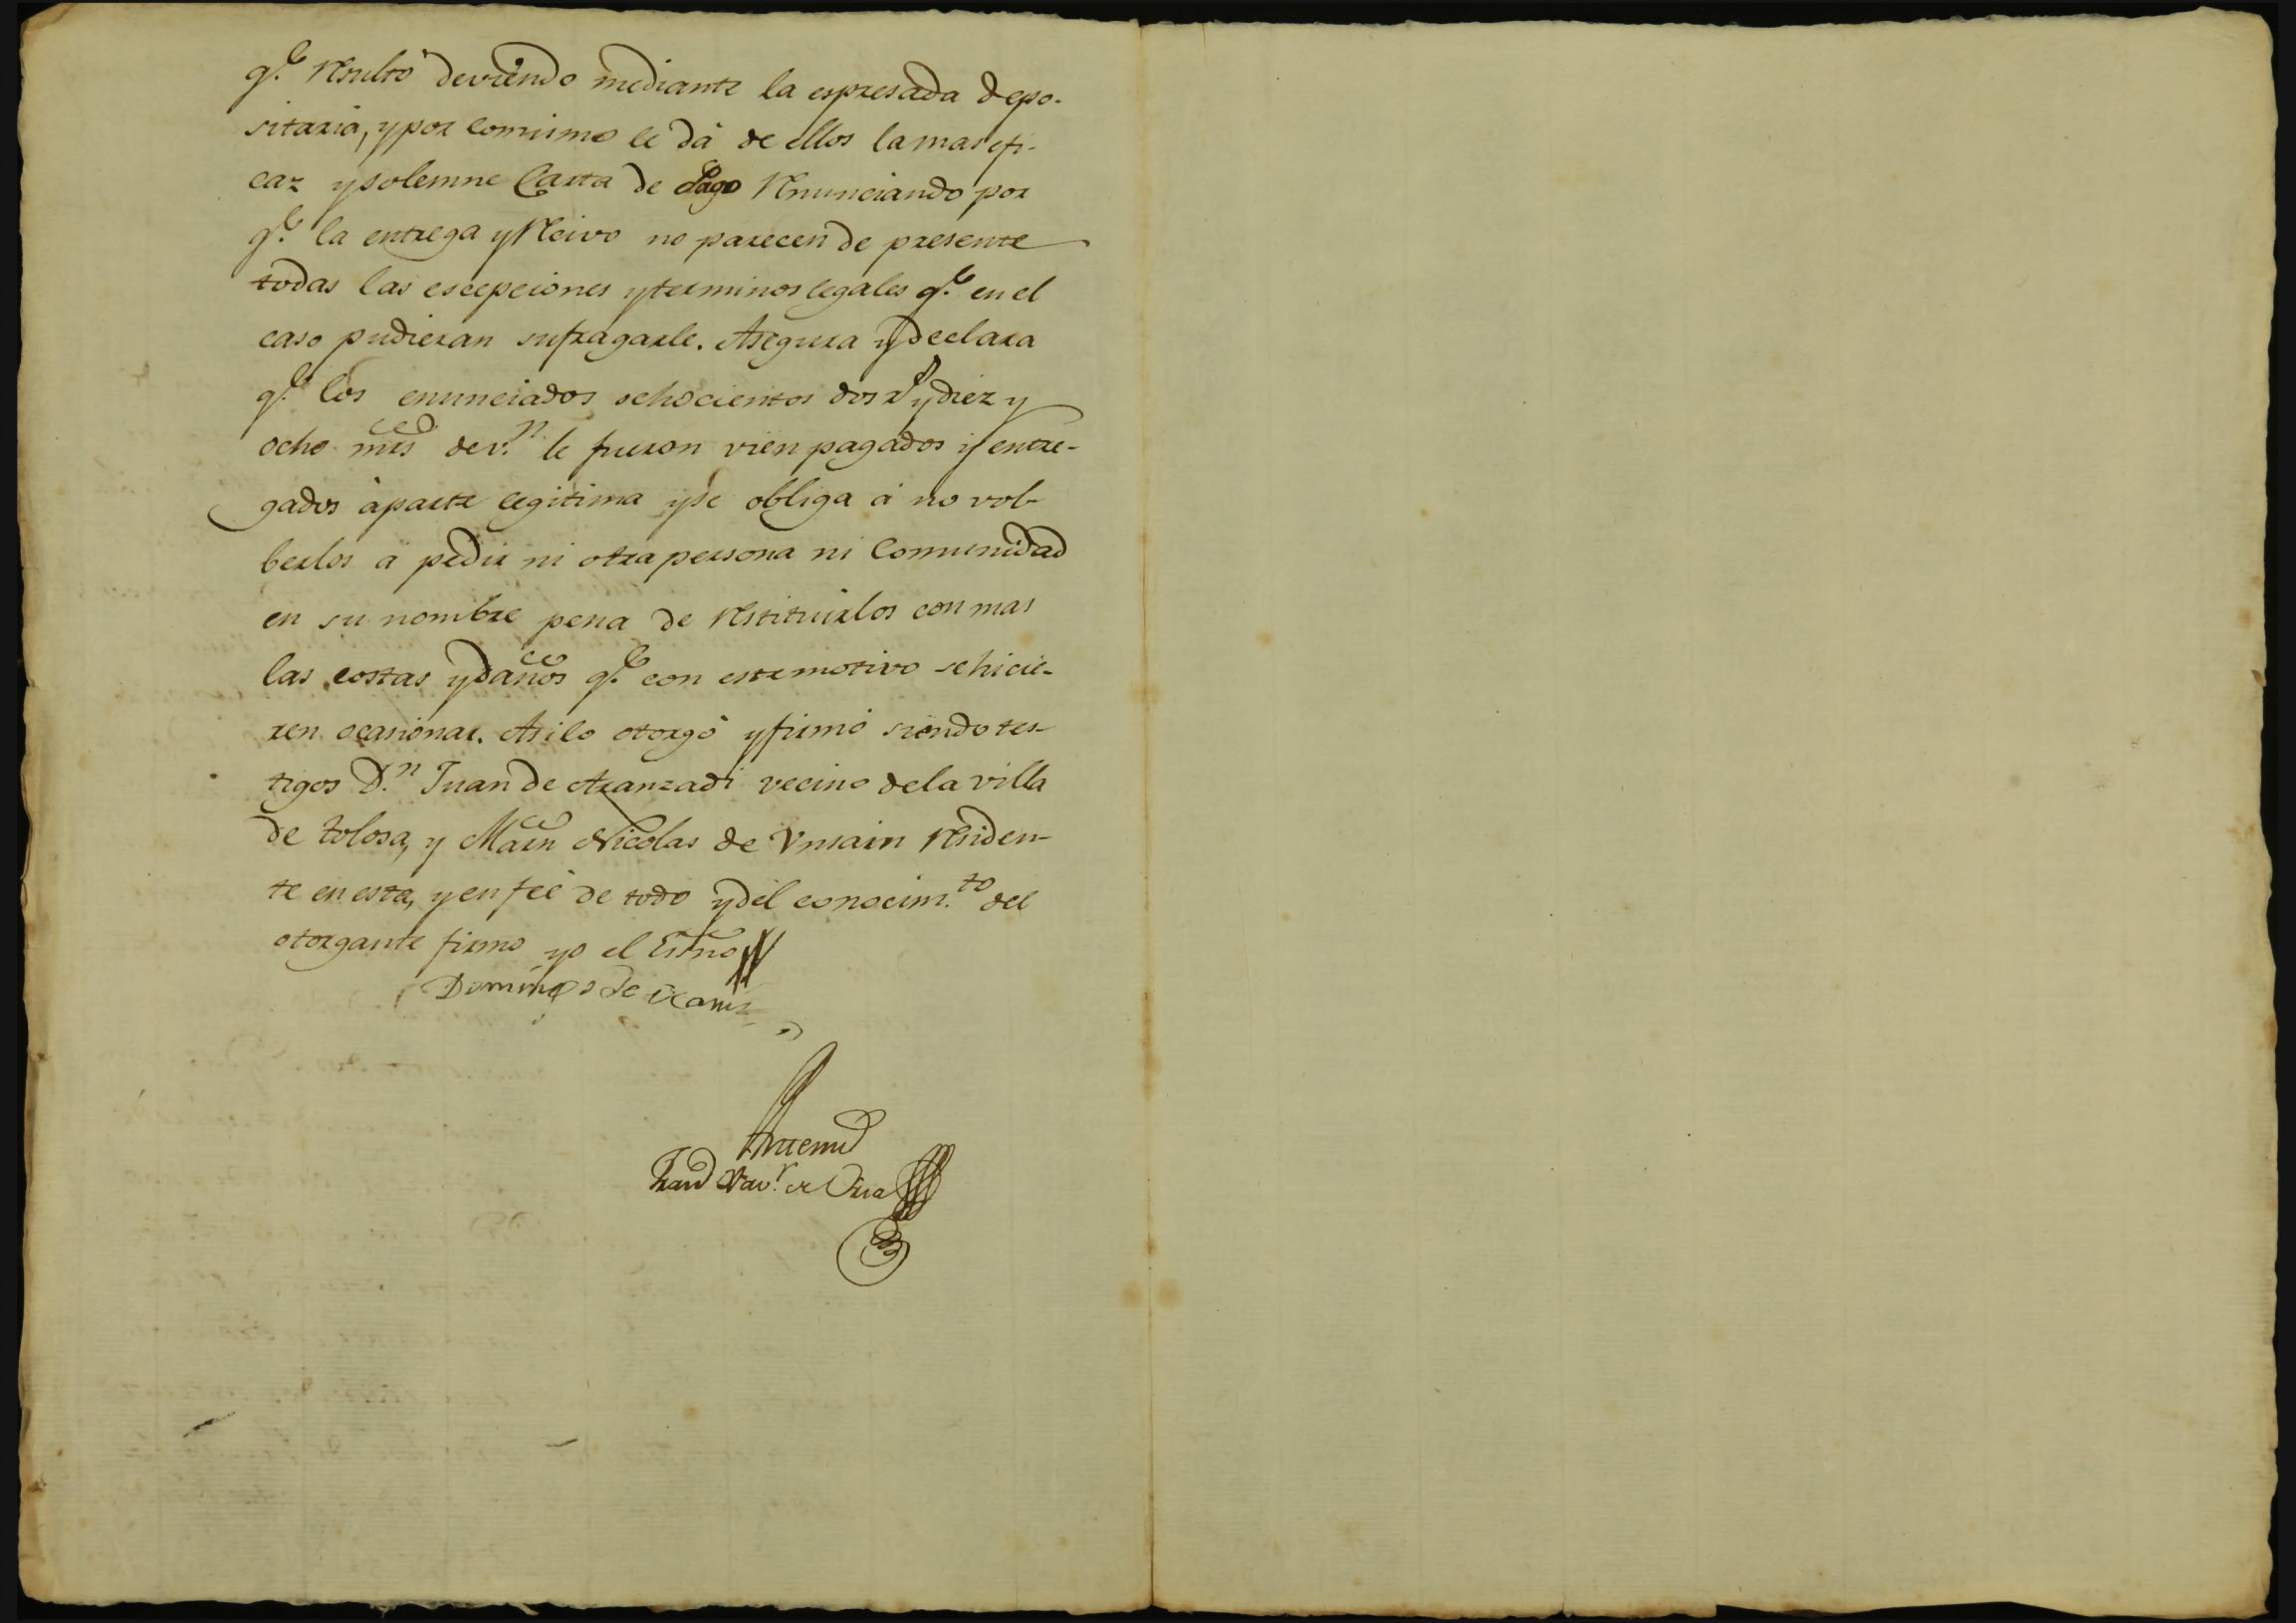 q.e Resultó deviendo mediante la espresada depo-
sitaria, y por lo mismo le dá de ellos la mas efi-
caz y solemne Carta de Pago Renunciando por
q.e la entrega y Recivo no parecen de presente
todas las escepciones y terminos legales q.e en el
caso pudieran sufragarle. Asegura y declara
q.e los enunciados ochocientos dos r.s y diez y
ocho mrs de v.n le fueron vien pagados y entre-
gados á parte legitima y se obliga á no vol-
berlos á pedir ni otra persona ni Comunidad
en su nombre pena de Restituirlos con mas
las costas y daños q.e con este motivo se hicie-
ren ocasionar. Asi lo otorgó y firmó siendo tes-
tigos D.n Juan de Aranzadi vecino de la villa
de Tolosa, y Mãrn Nicolas de Vnsain Residen-
te en esta, y en feé de todo y del conocim.to del
otorgante firmo yo el Es̃no
Domingo de
Antemi
Fran.co Xav.r de